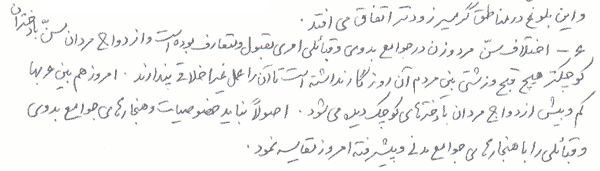 و این بلوغ در مناطق گرمسیر زودتر اتفاق می افتد.
۶- اختلاف سنّ مرد و زن در جوامع بدوی و قبائلی امری مقبول و متعارف بوده است و ازدواج مردان مسنّ با دختران
کوچکتر هیچ قبح و زشتی بین مردم آن روزگار نداشته است تا آن را عمل غیر اخلاقی بپندارند. امروز هم بین عربها
کم و بیش ازدواج مردان با دخترهای کوچک دیده می شود. اصولاً نباید خصوصیات و هنجارهای جوامع بدوی
و قبائلی را با هنجارهای جوامع مدنی و پیشرفته امروز مقایسه نمود.